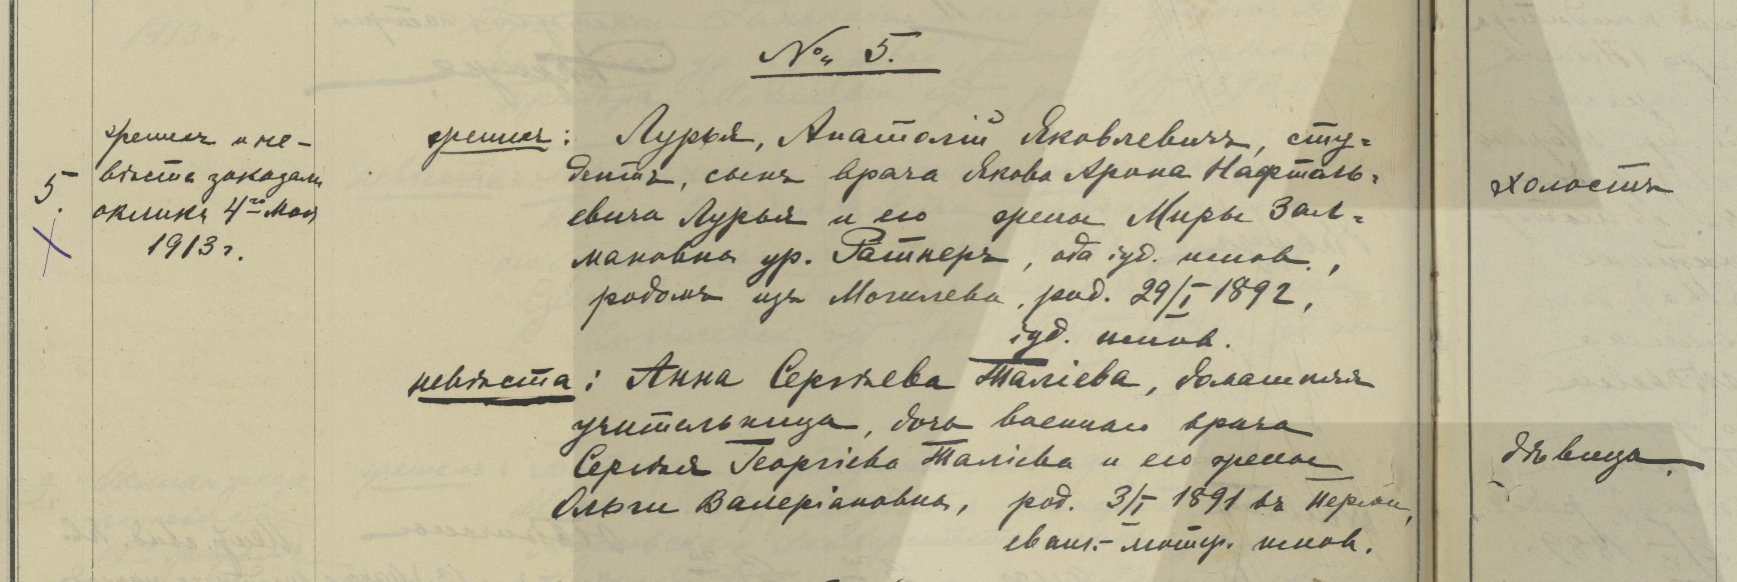 № 5.
5.
женихъ и не-
вѣста заказали
окликъ 4го Мая
1913 г.
женихъ: Лурья, Анатолій Яковлевичъ, сту-
дентъ, сынъ врача Якова Арона Нафталь-
евича Лурья и его жены Миры Зал-
мановны ур. Ратнеръ, оба іуд. испов.,
родомъ изъ Могилева, род. 29/I 1892,
іуд. испов.
холостъ
невѣста: Анна Сергѣева Таліева, домашняя
учительница, дочь военнаго врача
Сергѣя Георгіева Таліева и его жены
Ольги Валеріановны, род. 3/I 1891 въ
еванг.-лютер. испов.
дѣвица.